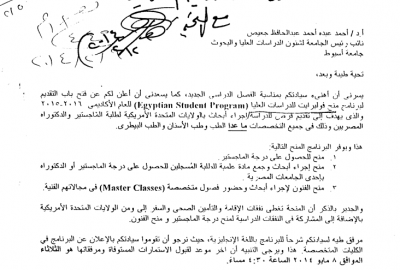 أ.د / أحمد عبده أحمد عبدالحافظ جعيص
نائب رئيس الجامعة لشئون الدراسات العليا والبحوث
جامعة أسيوط
تحية طيبة وبعد،
يسرني أن أهنىء سيادتكم بمناسبة الفصل الدراسى الجديد، كما يسعدني أن أعلن لكم عن فتح باب التقديم
لبرنامج منح فولبرايت للدراسات العليا (Egyptian Student Program) للعام الأكاديمى ٢٠١٥-٢٠١٦
والذى يهدف إلى تقديم فرص للدراسة/إجراء أبحاث بالولايات المتحدة الأمريكية لطلبة الماجستير والدكتوراه
المصريين وذلك فى جميع التخصصات ما عدا الطب وطب الأسنان والطب البيطرى.
هذا ويوفر البرنامج المنح التالية:
منح للحصول على درجة الماجستير.
منح إجراء أبحاث وجمع مادة علمية للطلبة المُسجلين للحصول على درجة الماجستير أو الدكتوراه
بإحدى الجامعات المصرية.
منح الفنون لإجراء أبحاث وحضور فصول متخصصة (Master Classes) فى مجالاتهم الفنية.
والجدير بالذكر أن المنحة تغطى نفقات الإقامة والتأمين الصحى والسفر إلى ومن الولايات المتحدة الأمريكية
بالإضافة إلى المشاركة فى النفقات الدراسية لمنح درجة الماجستير و منح الفنون.
مرفق طيه لسيادتكم شرحاً للبرنامج باللغة الإنجليزية، حيث نرجو أن تقوموا سيادتكم بالإعلان عن البرنامج في
الكليات المتخصصة. هذا ويرجى التنبيه أن آخر موعد لقبول الاستمارات المستوفاة ومرفقاتها هو الثلاثاء
الموافق ٨ مايو ٢٠١٤ الساعة ٤:٣٠ مساءً.